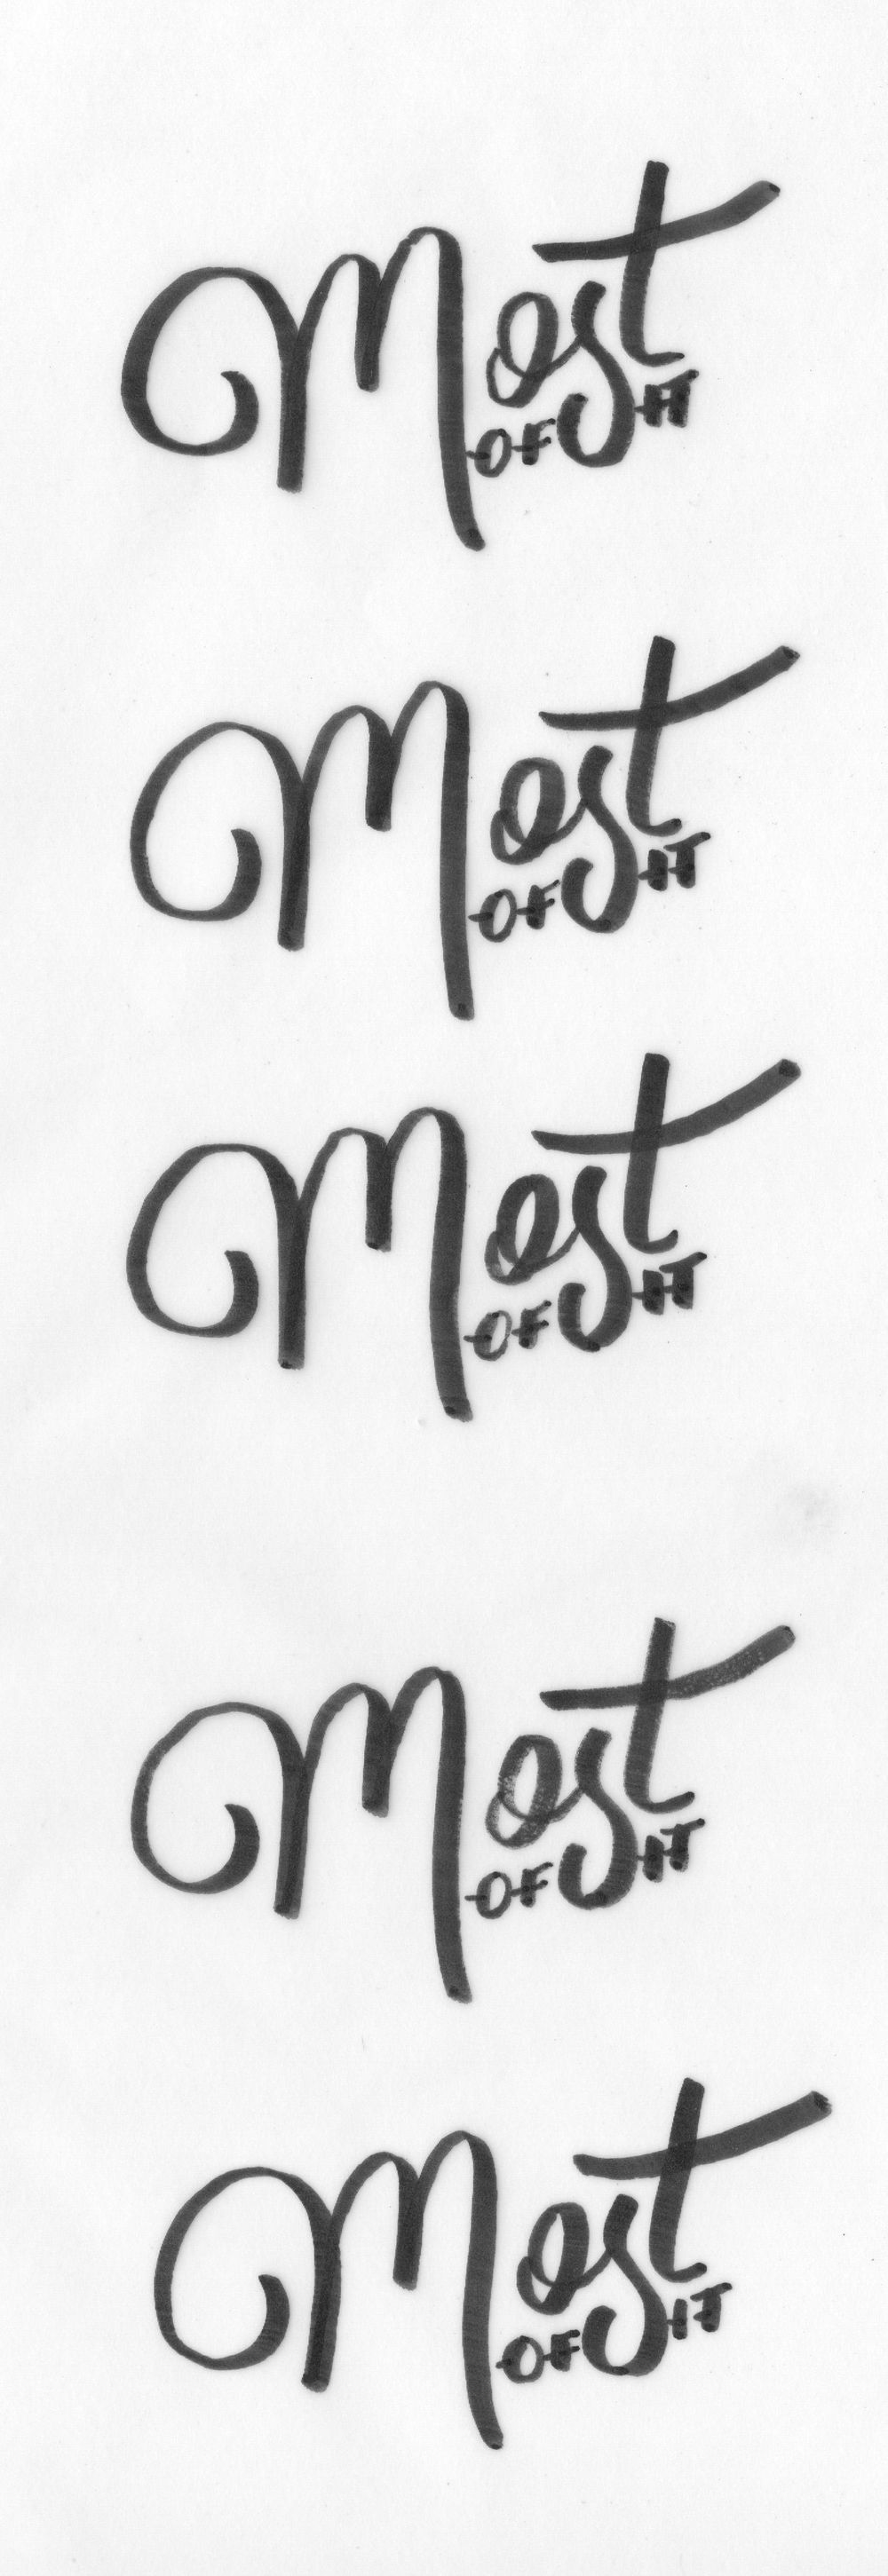 Most
OF IT
Most
OF IT
Most
OF IT
Most
OF IT
Most
OF IT